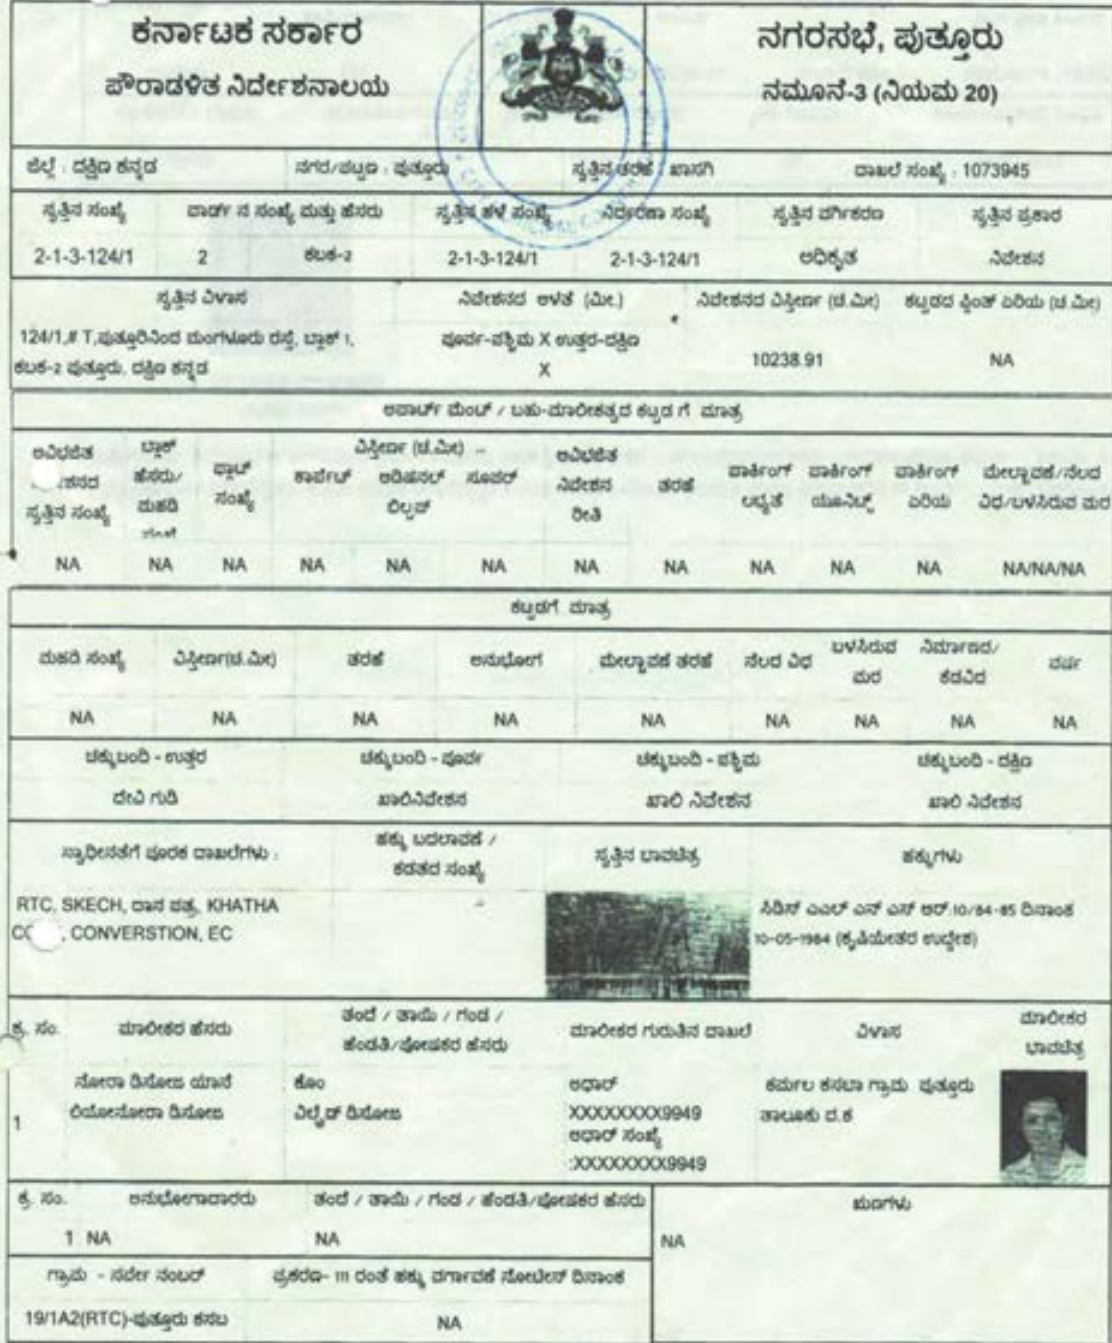 ಕರ್ನಾಟಕ ಸರ್ಕಾರ
ಪೌರಾಡಳಿತ ನಿರ್ದೇಶನಾಲಯ
ನಗರಸಭೆ, ಪುತ್ತೂರು
ನಮೂನ-3 (ನಿಯಮ 20)
ಜಿಲ್ಲೆ : ದಕ್ಷಿಣ ಕನ್ನಡ ನಗರ/ಪಟ್ಟಣ : ಪುತ್ತೂರು ಸ್ವತ್ತಿನ ತರಹೆ : ಖಾಸಗಿ ದಾಖಲೆ ಸಂಖ್ಯೆ : 1073945
ಸ್ವತ್ತಿನ ಸಂಖ್ಯೆ ವಾರ್ಡ್ ನ ಸಂಖ್ಯೆ ಮತ್ತು ಹೆಸರು ಸ್ವತ್ತಿನ ಹಳೆ ಸಂಖ್ಯೆ ನಿರ್ಧರಣಾ ಸಂಖ್ಯೆ ಸ್ವತ್ತಿನ ವರ್ಗಿಕರಣ ಸ್ವತ್ತಿನ ಪ್ರಕಾರ
2-1-3-124/1 2 ಕಬಕ-2 2-1-3-124/1 2-1-3-124/1 ಅಧಿಕೃತ ನಿವೇಶನ
ಸ್ವತ್ತಿನ ವಿಳಾಸ ನಿವೇಶನದ ಅಳತೆ (ಮೀ.) ನಿವೇಶನದ ವಿಸ್ತೀರ್ಣ (ಚ.ಮೀ) ಕಟ್ಟಡದ ಪ್ಲಿಂತ್ ಏರಿಯ (ಚ.ಮೀ)
124/1,# T,ಪುತ್ತೂರಿನಿಂದ ಮಂಗಳೂರು ರಸ್ತೆ, ಬ್ಲಾಕ್ 1, ಪೂರ್ವ-ಪಶ್ಚಿಮ X ಉತ್ತರ-ದಕ್ಷಿಣ
ಕಬಕ-2 ಪುತ್ತೂರು, ದಕ್ಷಿಣ ಕನ್ನಡ X 10238.91 NA
ಅಪಾರ್ಟ್ ಮೆಂಟ್ / ಬಹು-ಮಾಲೀಕತ್ವದ ಕಟ್ಟಡ ಗೆ ಮಾತ್ರ
ಅವಿಭಜಿತ ಬ್ಲಾಕ್ ವಿಸ್ತೀರ್ಣ (ಚ.ಮೀ) ಅವಿಭಜಿತ
ಹೆಸರು/ ಫ್ಲಾಟ್ ಕಾರ್ಪೆಟ್ ಅಡಿಷನಲ್ ಸೂಪರ್ ನಿವೇಶನ ತರಹೆ ಪಾರ್ಕಿಂಗ್ ಪಾರ್ಕಿಂಗ್ ಪಾರ್ಕಿಂಗ್ ಮೇಲ್ಛಾವಣಿ/ನೆಲದ
ಸ್ವತ್ತಿನ ಸಂಖ್ಯೆ ಮಹಡಿ ಸಂಖ್ಯೆ ಬಿಲ್ಟಪ್ ರೀತಿ ಲಭ್ಯತೆ ಯೂನಿಟ್ಸ್ ಏರಿಯ ವಿಧ/ಬಳಸಿರುವ ಮರ
NA NA NA NA NA NA NA NA NA NA NA NA/NA/NA
ಕಟ್ಟಡಗೆ ಮಾತ್ರ
ಮಹಡಿ ಸಂಖ್ಯೆ ವಿಸ್ತೀರ್ಣ(ಚ.ಮೀ) ತರಹೆ ಅನುಭೋಗ ಮೇಲ್ಛಾವಣಿ ತರಹೆ ನೆಲದ ವಿಧ ಬಳಸಿರುವ ಮರ ನಿರ್ಮಾಣದ/ ಕೆಡವಿದ ವರ್ಷ
NA NA NA NA NA NA NA NA NA
ಚಕ್ಕುಬಂದಿ - ಉತ್ತರ ಚಕ್ಕುಬಂದಿ - ಪೂರ್ವ ಚಕ್ಕುಬಂದಿ - ಪಶ್ಚಿಮ ಚಕ್ಕುಬಂದಿ - ದಕ್ಷಿಣ
ದೇವಿ ಗುಡಿ ಖಾಲಿನಿವೇಶನ ಖಾಲಿ ನಿವೇಶನ ಖಾಲಿ ನಿವೇಶನ
ಸ್ವಾಧೀನತೆಗೆ ಪೂರಕ ದಾಖಲೆಗಳು : ಹಕ್ಕು ಬದಲಾವಣೆ / ಕಡತದ ಸಂಖ್ಯೆ ಸ್ವತ್ತಿನ ಭಾವಚಿತ್ರ ಹಕ್ಕುಗಳು
RTC, SKECH, ದಾನ ಪತ್ರ, KHATHA ಸಿಡಿಸ್ ಎಎಲ್ ಎನ್ ಎಸ್ ಆರ್.10/84-85 ದಿನಾಂಕ
, CONVERSTION, EC 10-05-1984 (ಕೃಷಿಯೇತರ ಉದ್ದೇಶ)
ಕ್ರ. ಸಂ. ಮಾಲೀಕರ ಹೆಸರು ತಂದೆ / ತಾಯಿ / ಗಂಡ / ಹೆಂಡತಿ/ಪೋಷಕರ ಹೆಸರು ಮಾಲೀಕರ ಗುರುತಿನ ದಾಖಲೆ ವಿಳಾಸ ಮಾಲೀಕರ ಭಾವಚಿತ್ರ
ನೋರಾ ಡಿಸೋಜ ಯಾನೆ ಕೋಂ ಆಧಾರ್ ಕರ್ಮಲ ಕಸಬಾ ಗ್ರಾಮ ಪುತ್ತೂರು
1 ಲಿಯೋನೋರಾ ಡಿಸೋಜ ವಿಲ್ಫ್ರೆಡ್ ಡಿಸೋಜ XXXXXXXX9949 ತಾಲೂಕು ದ.ಕ
ಆಧಾರ್ ಸಂಖ್ಯೆ
:XXXXXXXX9949
ಕ್ರ. ಸಂ. ಅನುಭೋಗಾದಾರರು ತಂದೆ / ತಾಯಿ / ಗಂಡ / ಹೆಂಡತಿ/ಪೋಷಕರ ಹೆಸರು ಋಣಗಳು
1 NA NA NA
ಗ್ರಾಮ - ಸರ್ವೇ ನಂಬರ್ ಪ್ರಕರಣ- III ರಂತೆ ಹಕ್ಕು ವರ್ಗಾವಣೆ ನೋಟೀಸ್ ದಿನಾಂಕ
19/1A2(RTC)-ಪುತ್ತೂರು ಕಸಬ NA